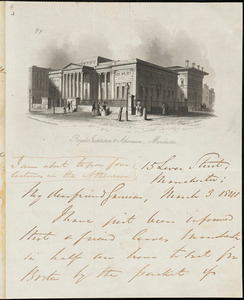 Royal Institution & Athenaeum, Manchester.
I am about to give four
lectures in the Athenaeum
15 Lever Street,
Manchester,
March 3, 1841
My dear friend Garrison,
I have just been informed
that a friend leaves
in half an hour to
Boston by the packet of